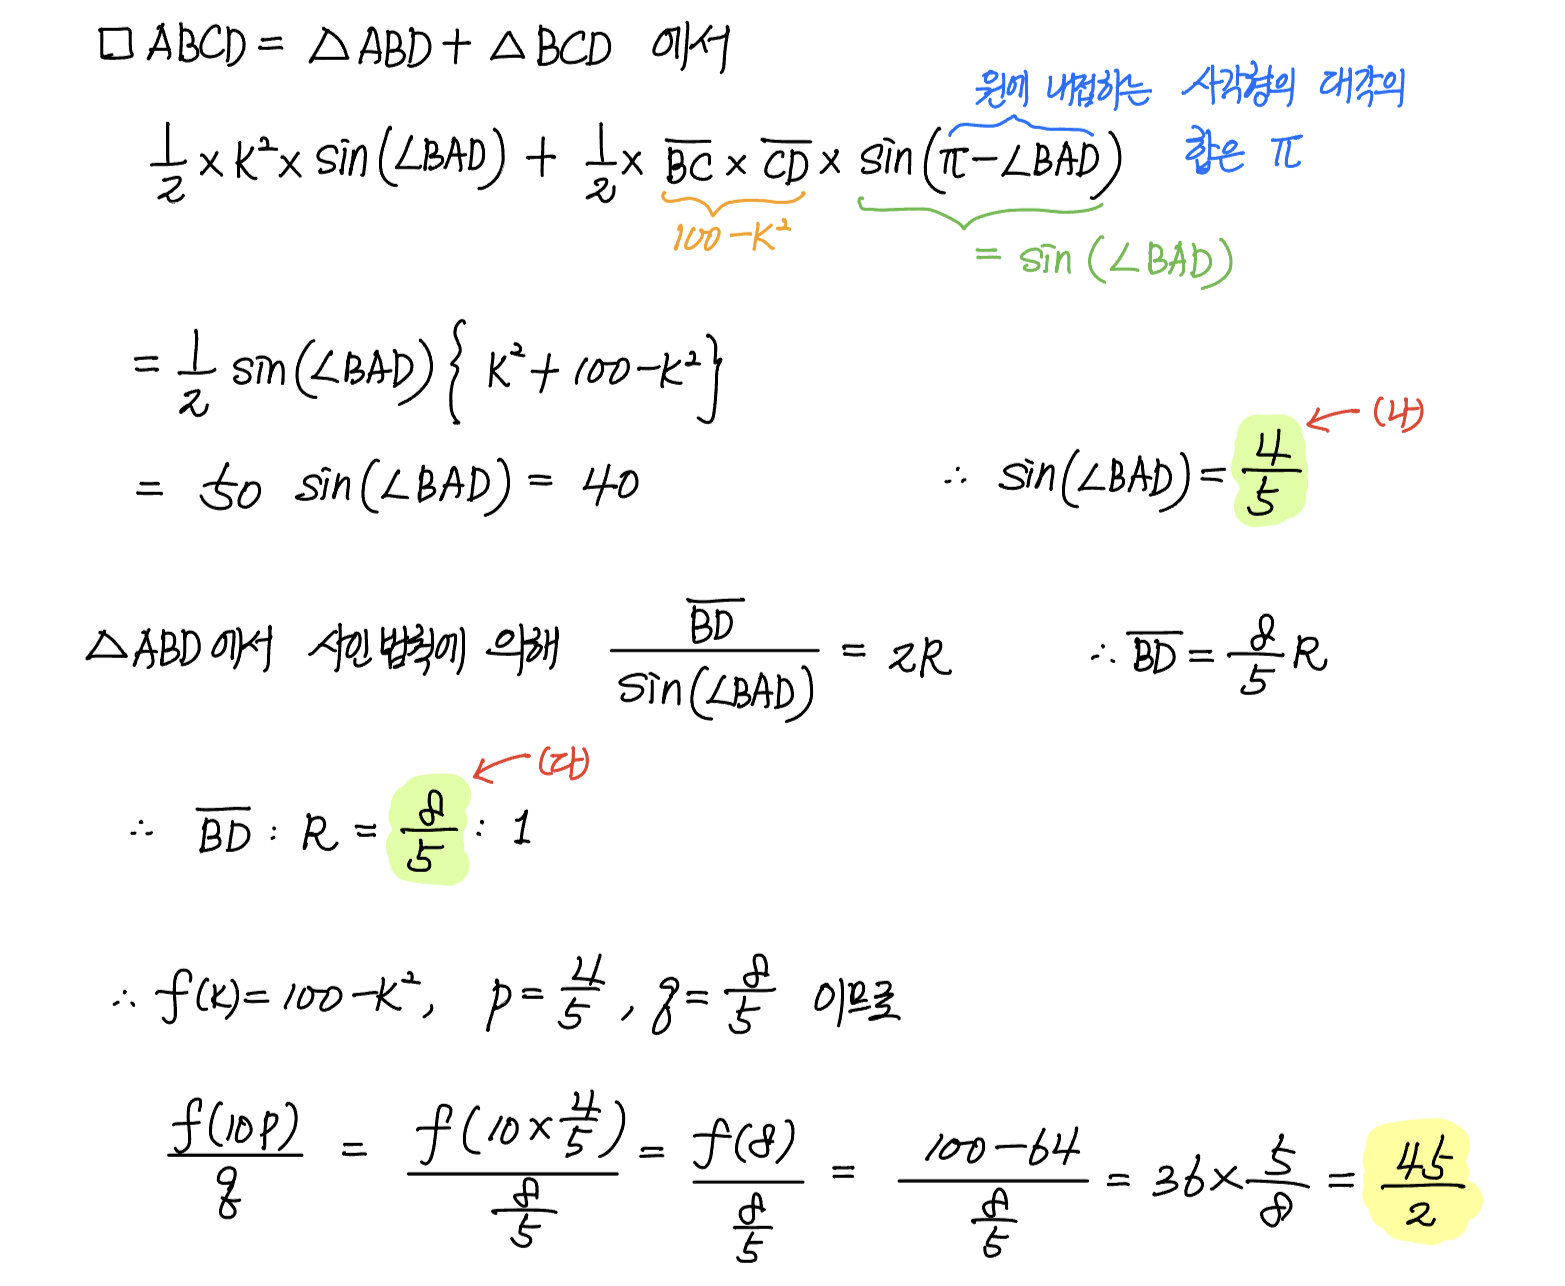 □ABCD = △ABD + △BCD 에서
원에 내접하는 사각형의 대각의
합은 π
1/2 × K² × sin(∠BAD) + 1/2 × BC × CD × sin(π-∠BAD)
100-K²
= sin(∠BAD)
= 1/2 sin(∠BAD){K²+100-K²}
= 50 sin(∠BAD) = 40 ∴ sin(∠BAD) = 4/5 ← (나)
△ABD에서 사인법칙에 의해 BD/sin(∠BAD) = 2R ∴ BD = 8/5 R
← (다)
∴ BD : R = 8/5 : 1
∴ f(K) = 100-K², p = 4/5, q = 8/5 이므로
f(10p)/q = f(10×4/5)/(8/5) = f(8)/(8/5) = (100-64)/(8/5) = 36×5/8 = 45/2